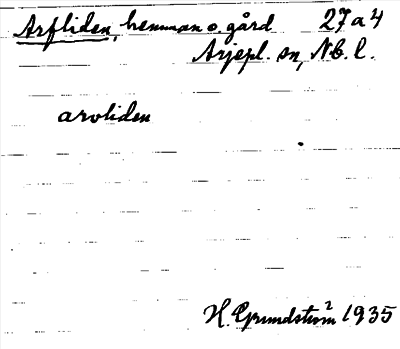 Arfliden, hemman o. gård 27a4
Arjepl. sn, Nb. l.
arvliden
H. Grundström² 1935